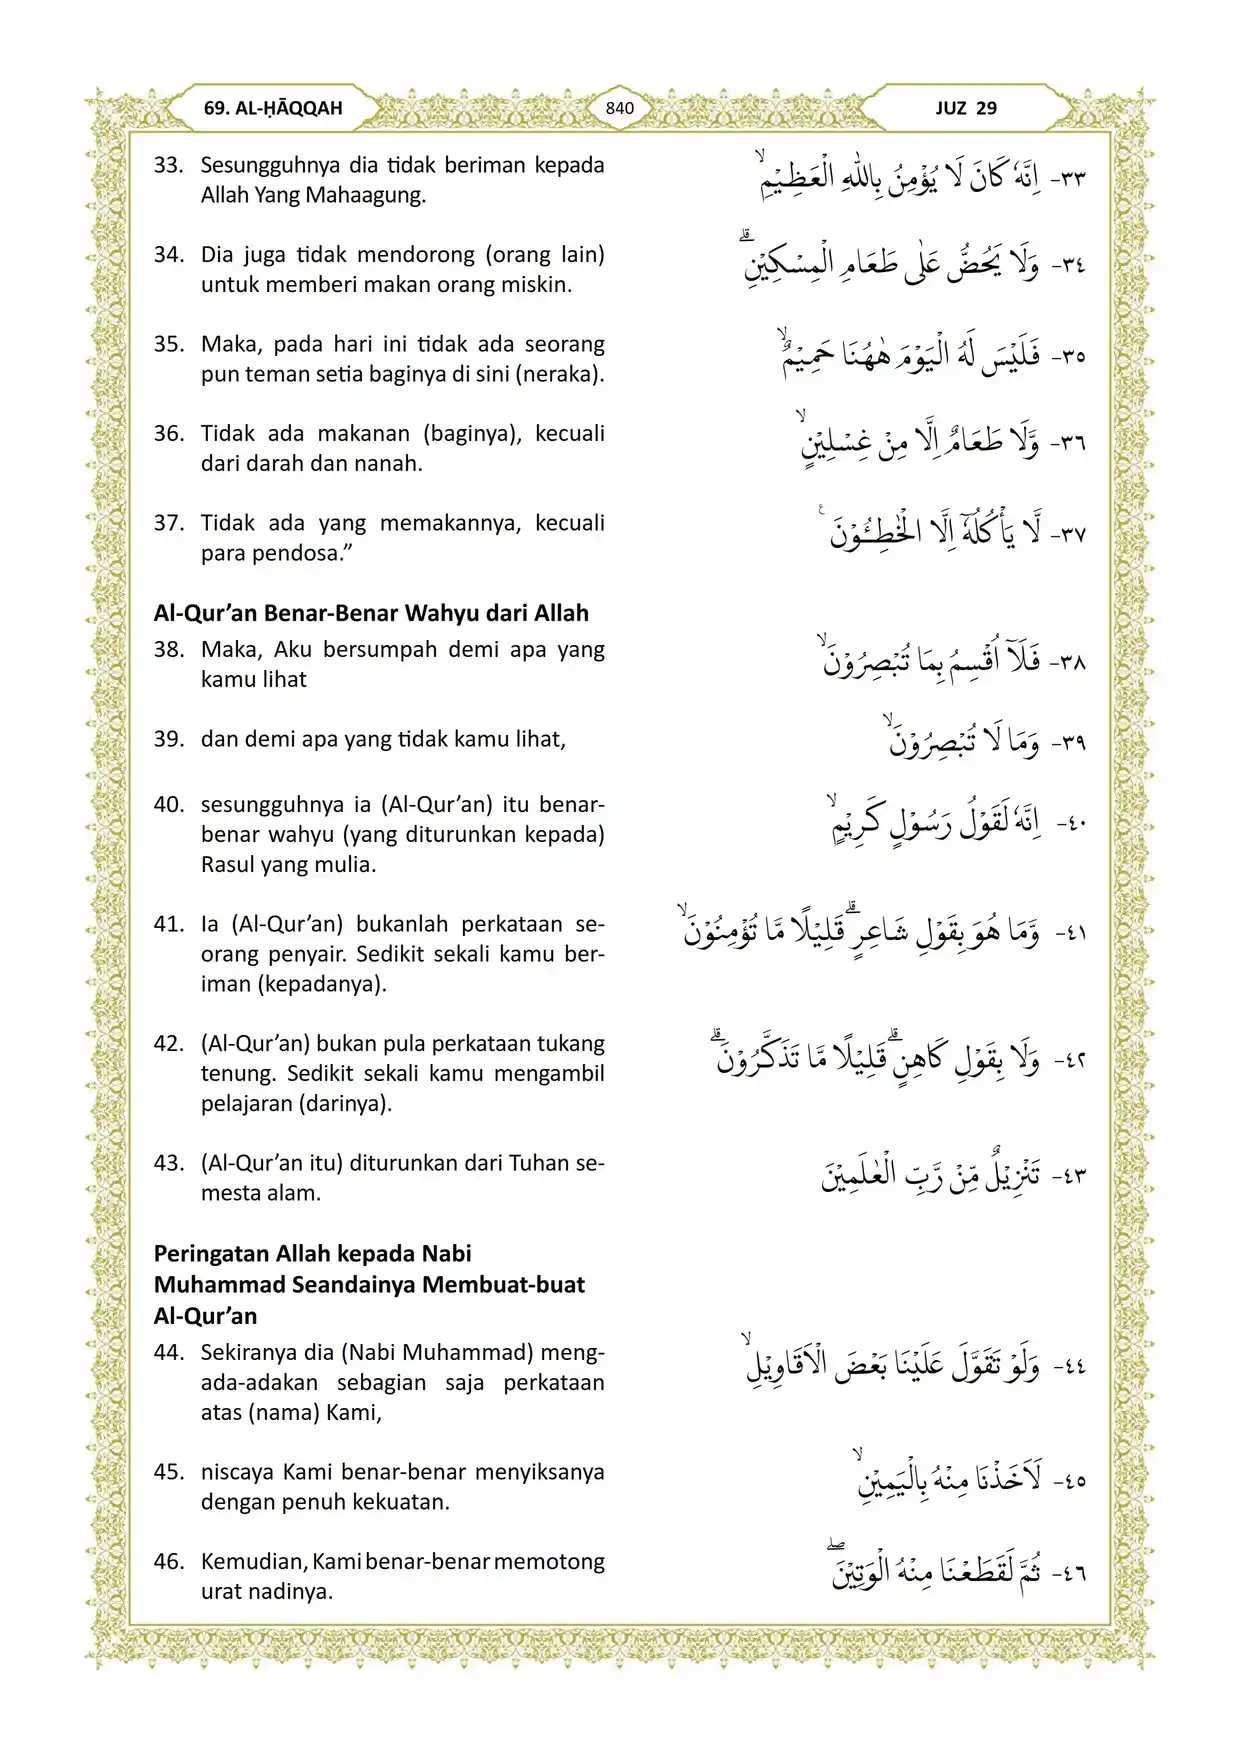 69. AL-ḤĀQQAH
840
JUZ 29
33. Sesungguhnya dia tidak beriman kepada
Allah Yang Mahaagung.
٣٣- اِنَّهٗ كَانَ لَا يُؤْمِنُ بِاللّٰهِ الْعَظِيْمِۙ
34. Dia juga tidak mendorong (orang lain)
untuk memberi makan orang miskin.
٣٤- وَلَا يَحُضُّ عَلٰى طَعَامِ الْمِسْكِيْنِۗ
35. Maka, pada hari ini tidak ada seorang
pun teman setia baginya di sini (neraka).
٣٥- فَلَيْسَ لَهُ الْيَوْمَ هٰهُنَا حَمِيْمٌۙ
36. Tidak ada makanan (baginya), kecuali
dari darah dan nanah.
٣٦- وَّلَا طَعَامٌ اِلَّا مِنْ غِسْلِيْنٍۙ
37. Tidak ada yang memakannya, kecuali
para pendosa.”
٣٧- لَّا يَأْكُلُهٗٓ اِلَّا الْخٰطِـُٔوْنَ ࣖ
Al-Qur’an Benar-Benar Wahyu dari Allah
38. Maka, Aku bersumpah demi apa yang
kamu lihat
٣٨- فَلَآ اُقْسِمُ بِمَا تُبْصِرُوْنَۙ
39. dan demi apa yang tidak kamu lihat,
٣٩- وَمَا لَا تُبْصِرُوْنَۙ
40. sesungguhnya ia (Al-Qur’an) itu benar-
benar wahyu (yang diturunkan kepada)
Rasul yang mulia.
٤٠- اِنَّهٗ لَقَوْلُ رَسُوْلٍ كَرِيْمٍۙ
41. Ia (Al-Qur’an) bukanlah perkataan se-
orang penyair. Sedikit sekali kamu ber-
iman (kepadanya).
٤١- وَّمَا هُوَ بِقَوْلِ شَاعِرٍۗ قَلِيْلًا مَّا تُؤْمِنُوْنَۙ
42. (Al-Qur’an) bukan pula perkataan tukang
tenung. Sedikit sekali kamu mengambil
pelajaran (darinya).
٤٢- وَلَا بِقَوْلِ كَاهِنٍۗ قَلِيْلًا مَّا تَذَكَّرُوْنَۗ
43. (Al-Qur’an itu) diturunkan dari Tuhan se-
mesta alam.
٤٣- تَنْزِيْلٌ مِّنْ رَّبِّ الْعٰلَمِيْنَ
Peringatan Allah kepada Nabi
Muhammad Seandainya Membuat-buat
Al-Qur’an
44. Sekiranya dia (Nabi Muhammad) meng-
ada-adakan sebagian saja perkataan
atas (nama) Kami,
٤٤- وَلَوْ تَقَوَّلَ عَلَيْنَا بَعْضَ الْاَقَاوِيْلِۙ
45. niscaya Kami benar-benar menyiksanya
dengan penuh kekuatan.
٤٥- لَاَخَذْنَا مِنْهُ بِالْيَمِيْنِۙ
46. Kemudian, Kami benar-benar memotong
urat nadinya.
٤٦- ثُمَّ لَقَطَعْنَا مِنْهُ الْوَتِيْنَۖ